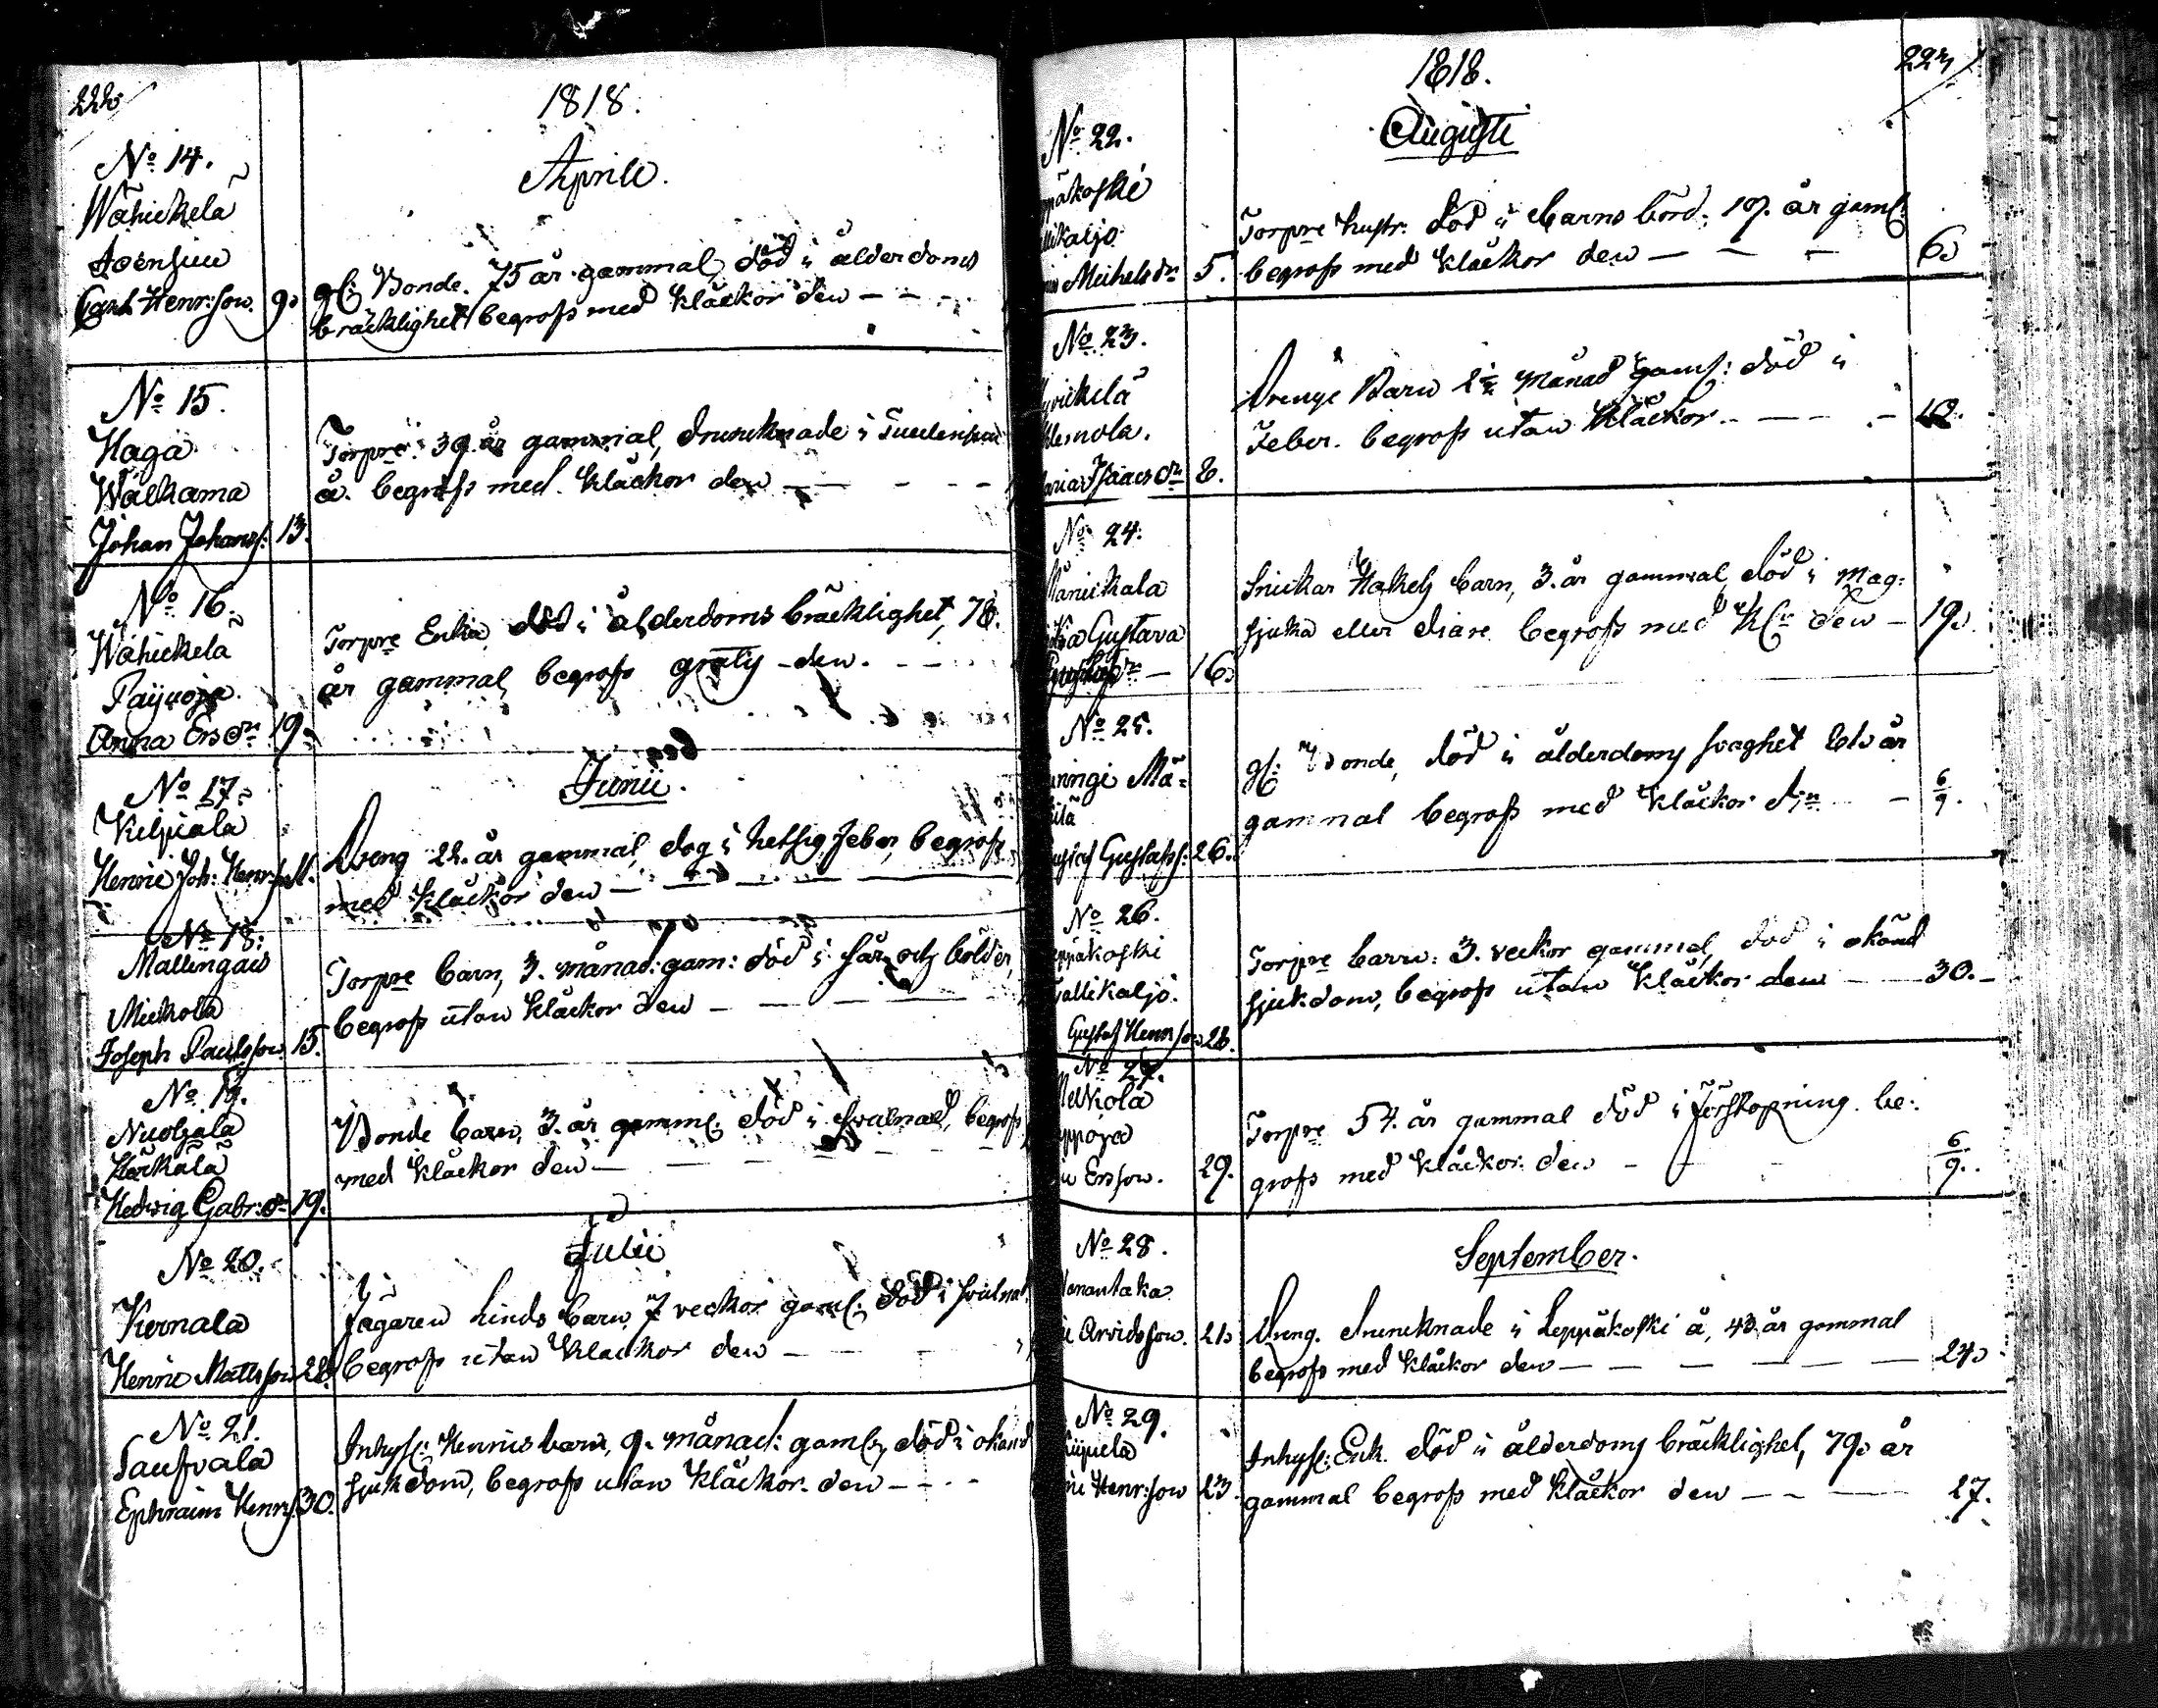 1818.
Aprill.
No 14.
Wähickelä
Joensuu
Carl Henr:son. 9.
gl: Bonde. 75 år gammal, död i ålderdoms
bräcklighet begrofs med klåckor den - - -
No 15.
Haga
Wälkama
Johan Johans: 13.
Torpre: 39. år gammal, drunknade i
å. begrofs med klåckor den - - - -
No 16.
Wähickelä
Anna Ersdr 19.
Torpre Enka, död i ålderdoms bräcklighet, 78.
år gammal, begrofs gratis den. - - -
Junii.
No 17.
Kilpiala
Henric Joh: Henr:s 11.
Dreng 22. år gammal, dog i hetsig feber, begrofs
med klåckor den - - - -
No 18.
Mallingais
Mickola
Joseph Paulsson 15.
Torpre barn, 3. månad: gam: död i sår och bölder,
begrofs utan klåckor den - - - -
No 19.
Nuoljala
Härkälä
Hedwig Gabr: dr 19.
Bonde barn, 3. år gamml: död i svulnad, begrofs
med klåckor den - - - -
Julii
No 20.
Kernala
Henric Mattsson 28.
Jägaren Linds barn, 7 veckor gaml: död i svulnad,
begrofs utan klackor den - - -
No 21.
Saufvala
Ephraim Henrs: 30.
Inhyse: Henrics barn, 9. månad: gaml, död i okänd
sjukdom, begrofs utan klåckor den - - -
1818.
Augusti
No 22.
päkoski
llikaljo
Michelsdr 5.
Torpre hustr: död i barns börd: år gaml:
begrofs med klåckor den - - - 6.
No 23.
nola.
aria Isaacs dr 8.
Drengs Barn månad gaml: död i
feber. begrofs utan klåckor - - - 10.
No 24.
Gustava
16.
Snickar barn, 3. år gammal, död i mag-
sjuka eller diare begrofs med Klr den - 19.
No 25.
ningi Mä-
ilä
ustaf Gustafss: 26.
gl: Bonde, död i ålderdoms svaghet år
gammal begrofs med klåckor d:n - 6/9.
No 26.
ppäkoski
allikaljo.
Gustaf Henrsson 28.
Torpre barn: 3. veckor gammal, död i okänd
sjukdom, begrofs utan klåckor den - 30.
No 27.
elkola
Ersson. 29.
Torpre 54. år gammal död i förstopning. be-
grofs med klåckor den - - - 6/9.
September.
No 28.
onantaka
Arvidsson. 21.
Dreng. drunknade i Leppäkoski å, 43 år gammal
begrofs med klåckor den - - - - 24.
No 29.
Henr:son 23.
Inhyse: Enk. död i ålderdoms bräcklighet, 79. år
gammal begrofs med klåckor den - - - 27.